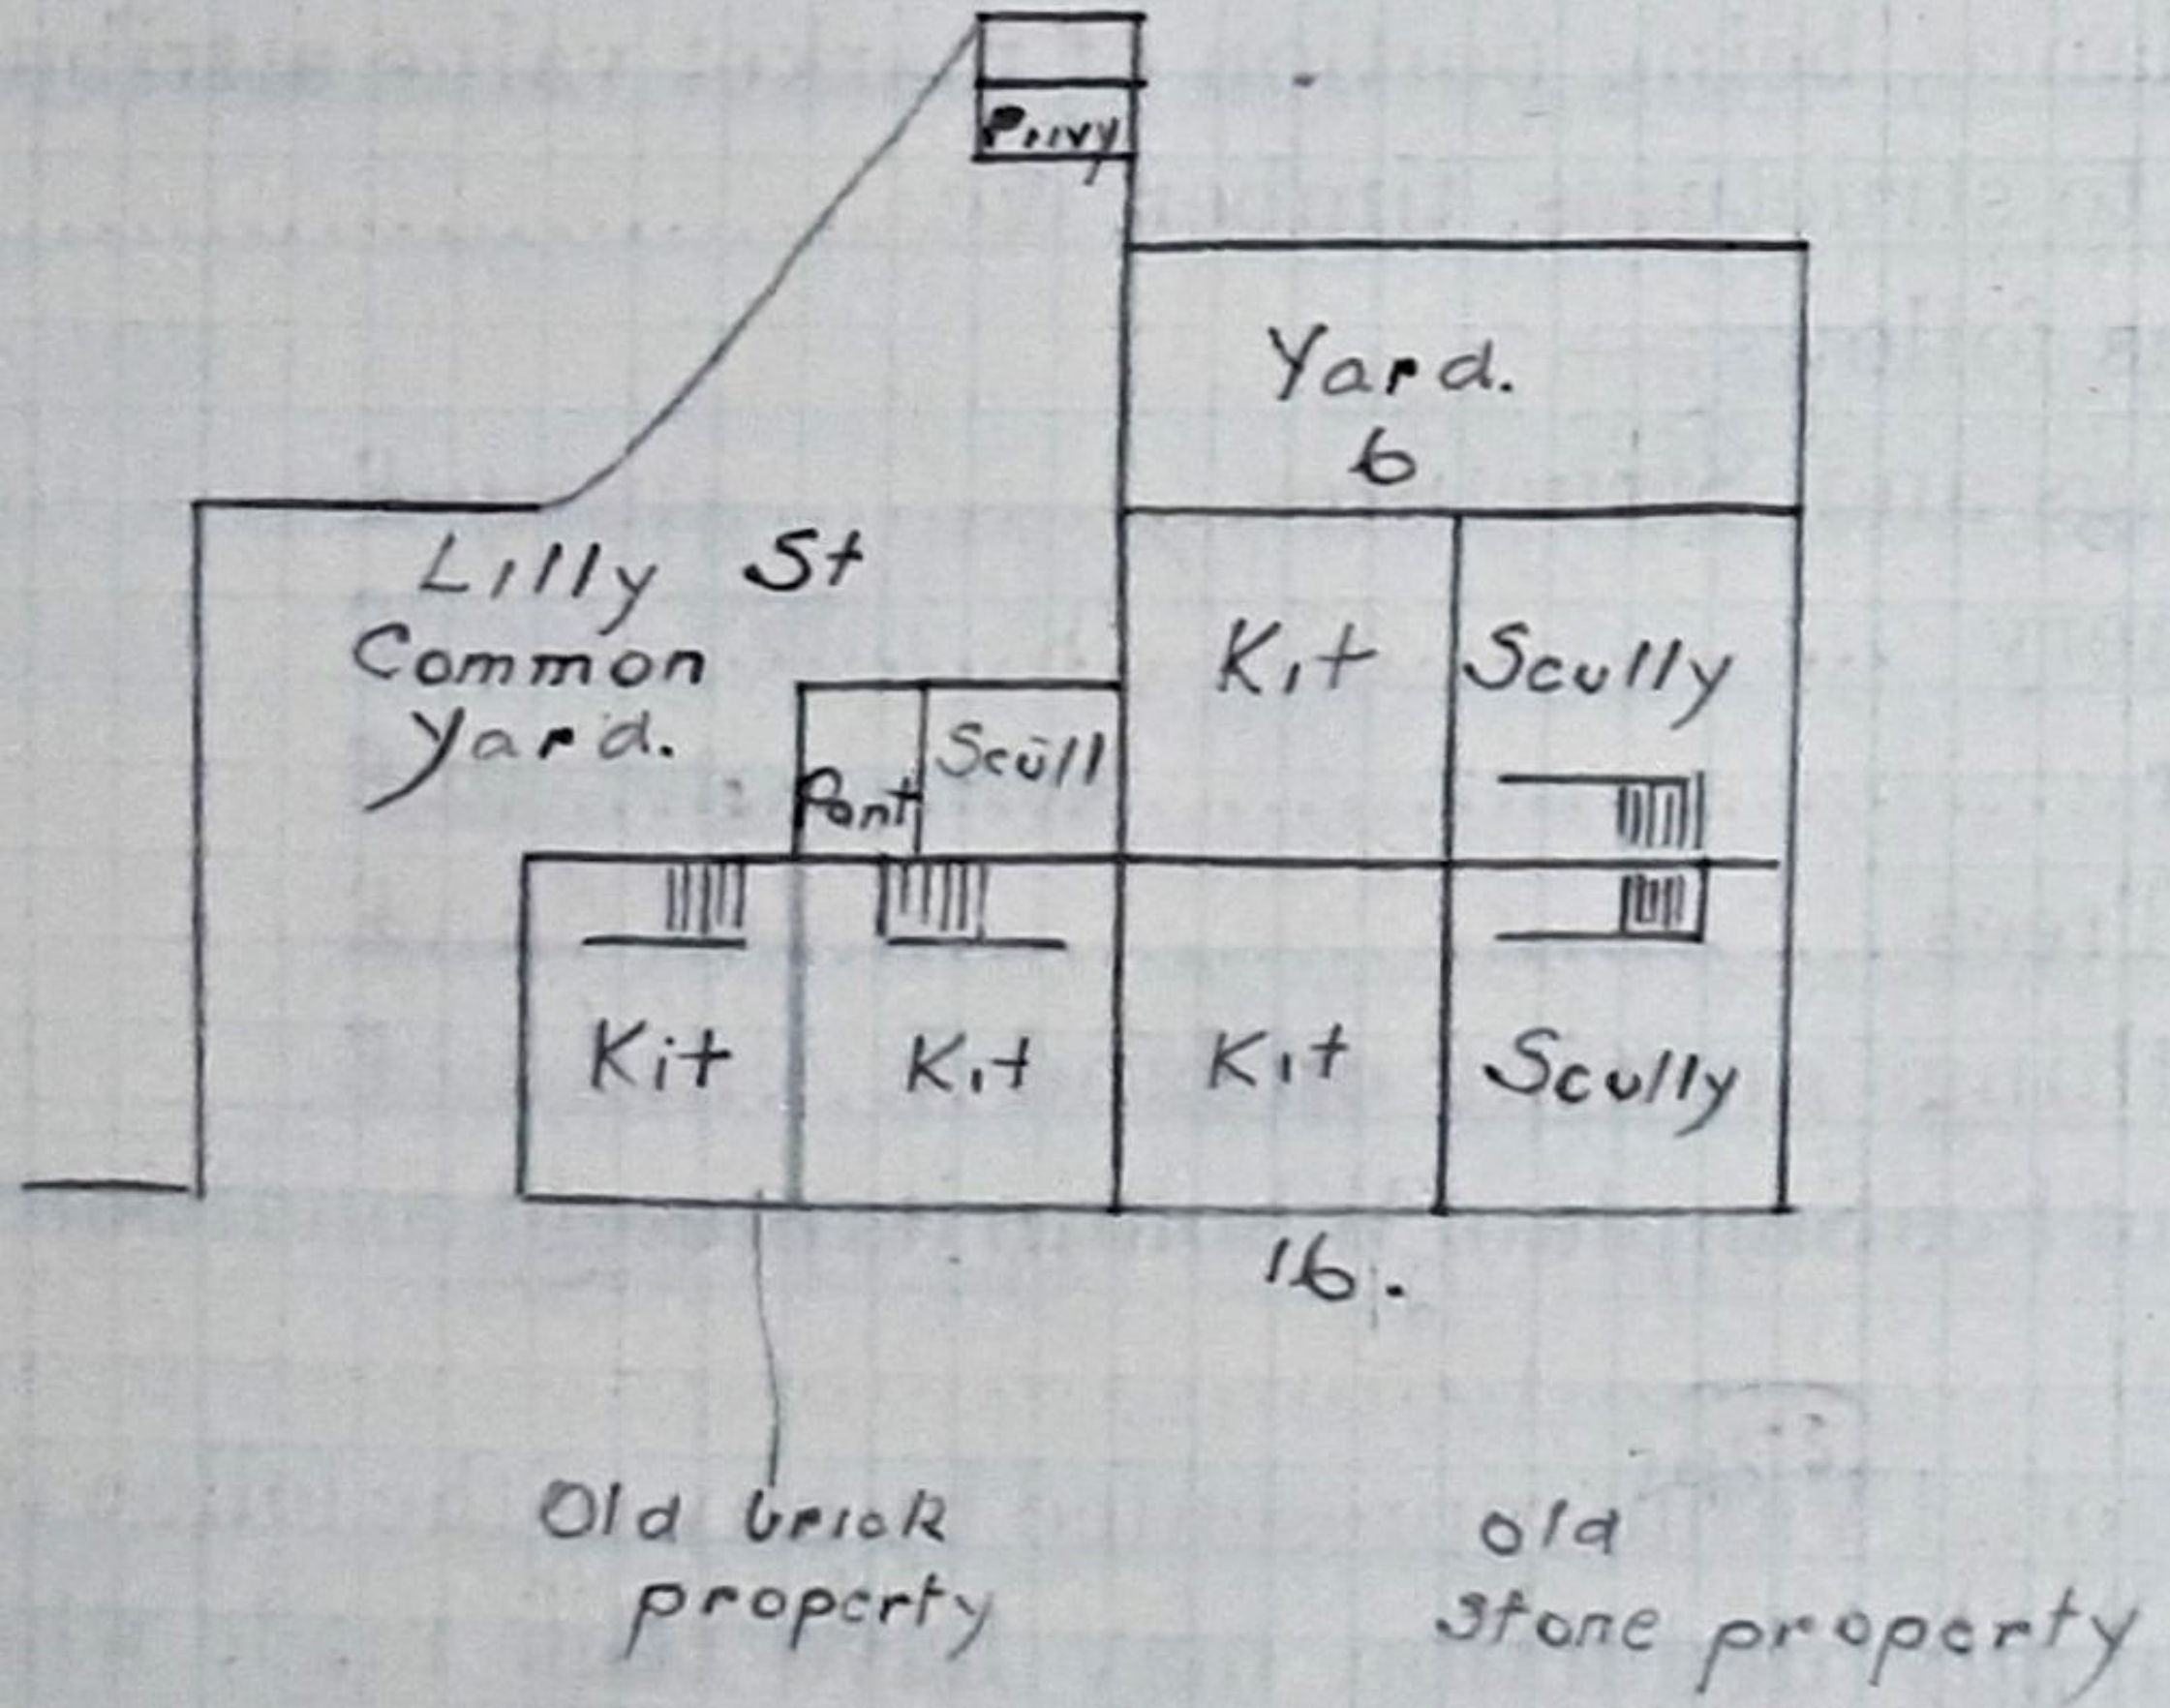 Privy
Yard.
6
Lilly St
Common
Yard.
Kit Scully
Pant Scull
Kit Kit Kit Scully
16.
Old brick
property
old
stone property